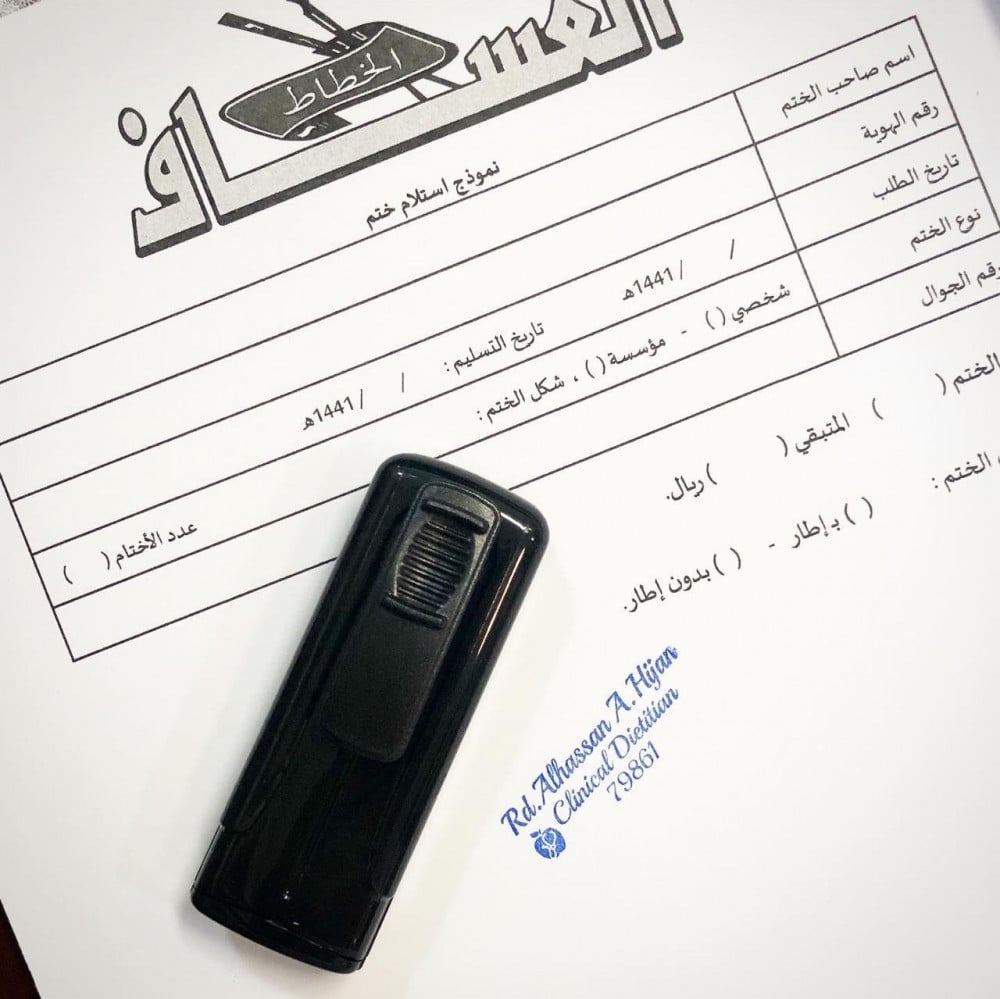 العساف
الخطاط
نموذج استلام ختم
اسم صاحب الختم
رقم الهوية
تاريخ الطلب / / 1441هـ تاريخ التسليم : / / 1441هـ
نوع الختم شخصي ( ) - مؤسسة ( ) ، شكل الختم : عدد الأختام ( )
رقم الجوال
الختم ( ) المتبقي ( ) ريال.
الختم : ( ) بـإطار - ( ) بدون إطار.
Rd.Alhassan A.Hijan
Clinical Dietitian
79861